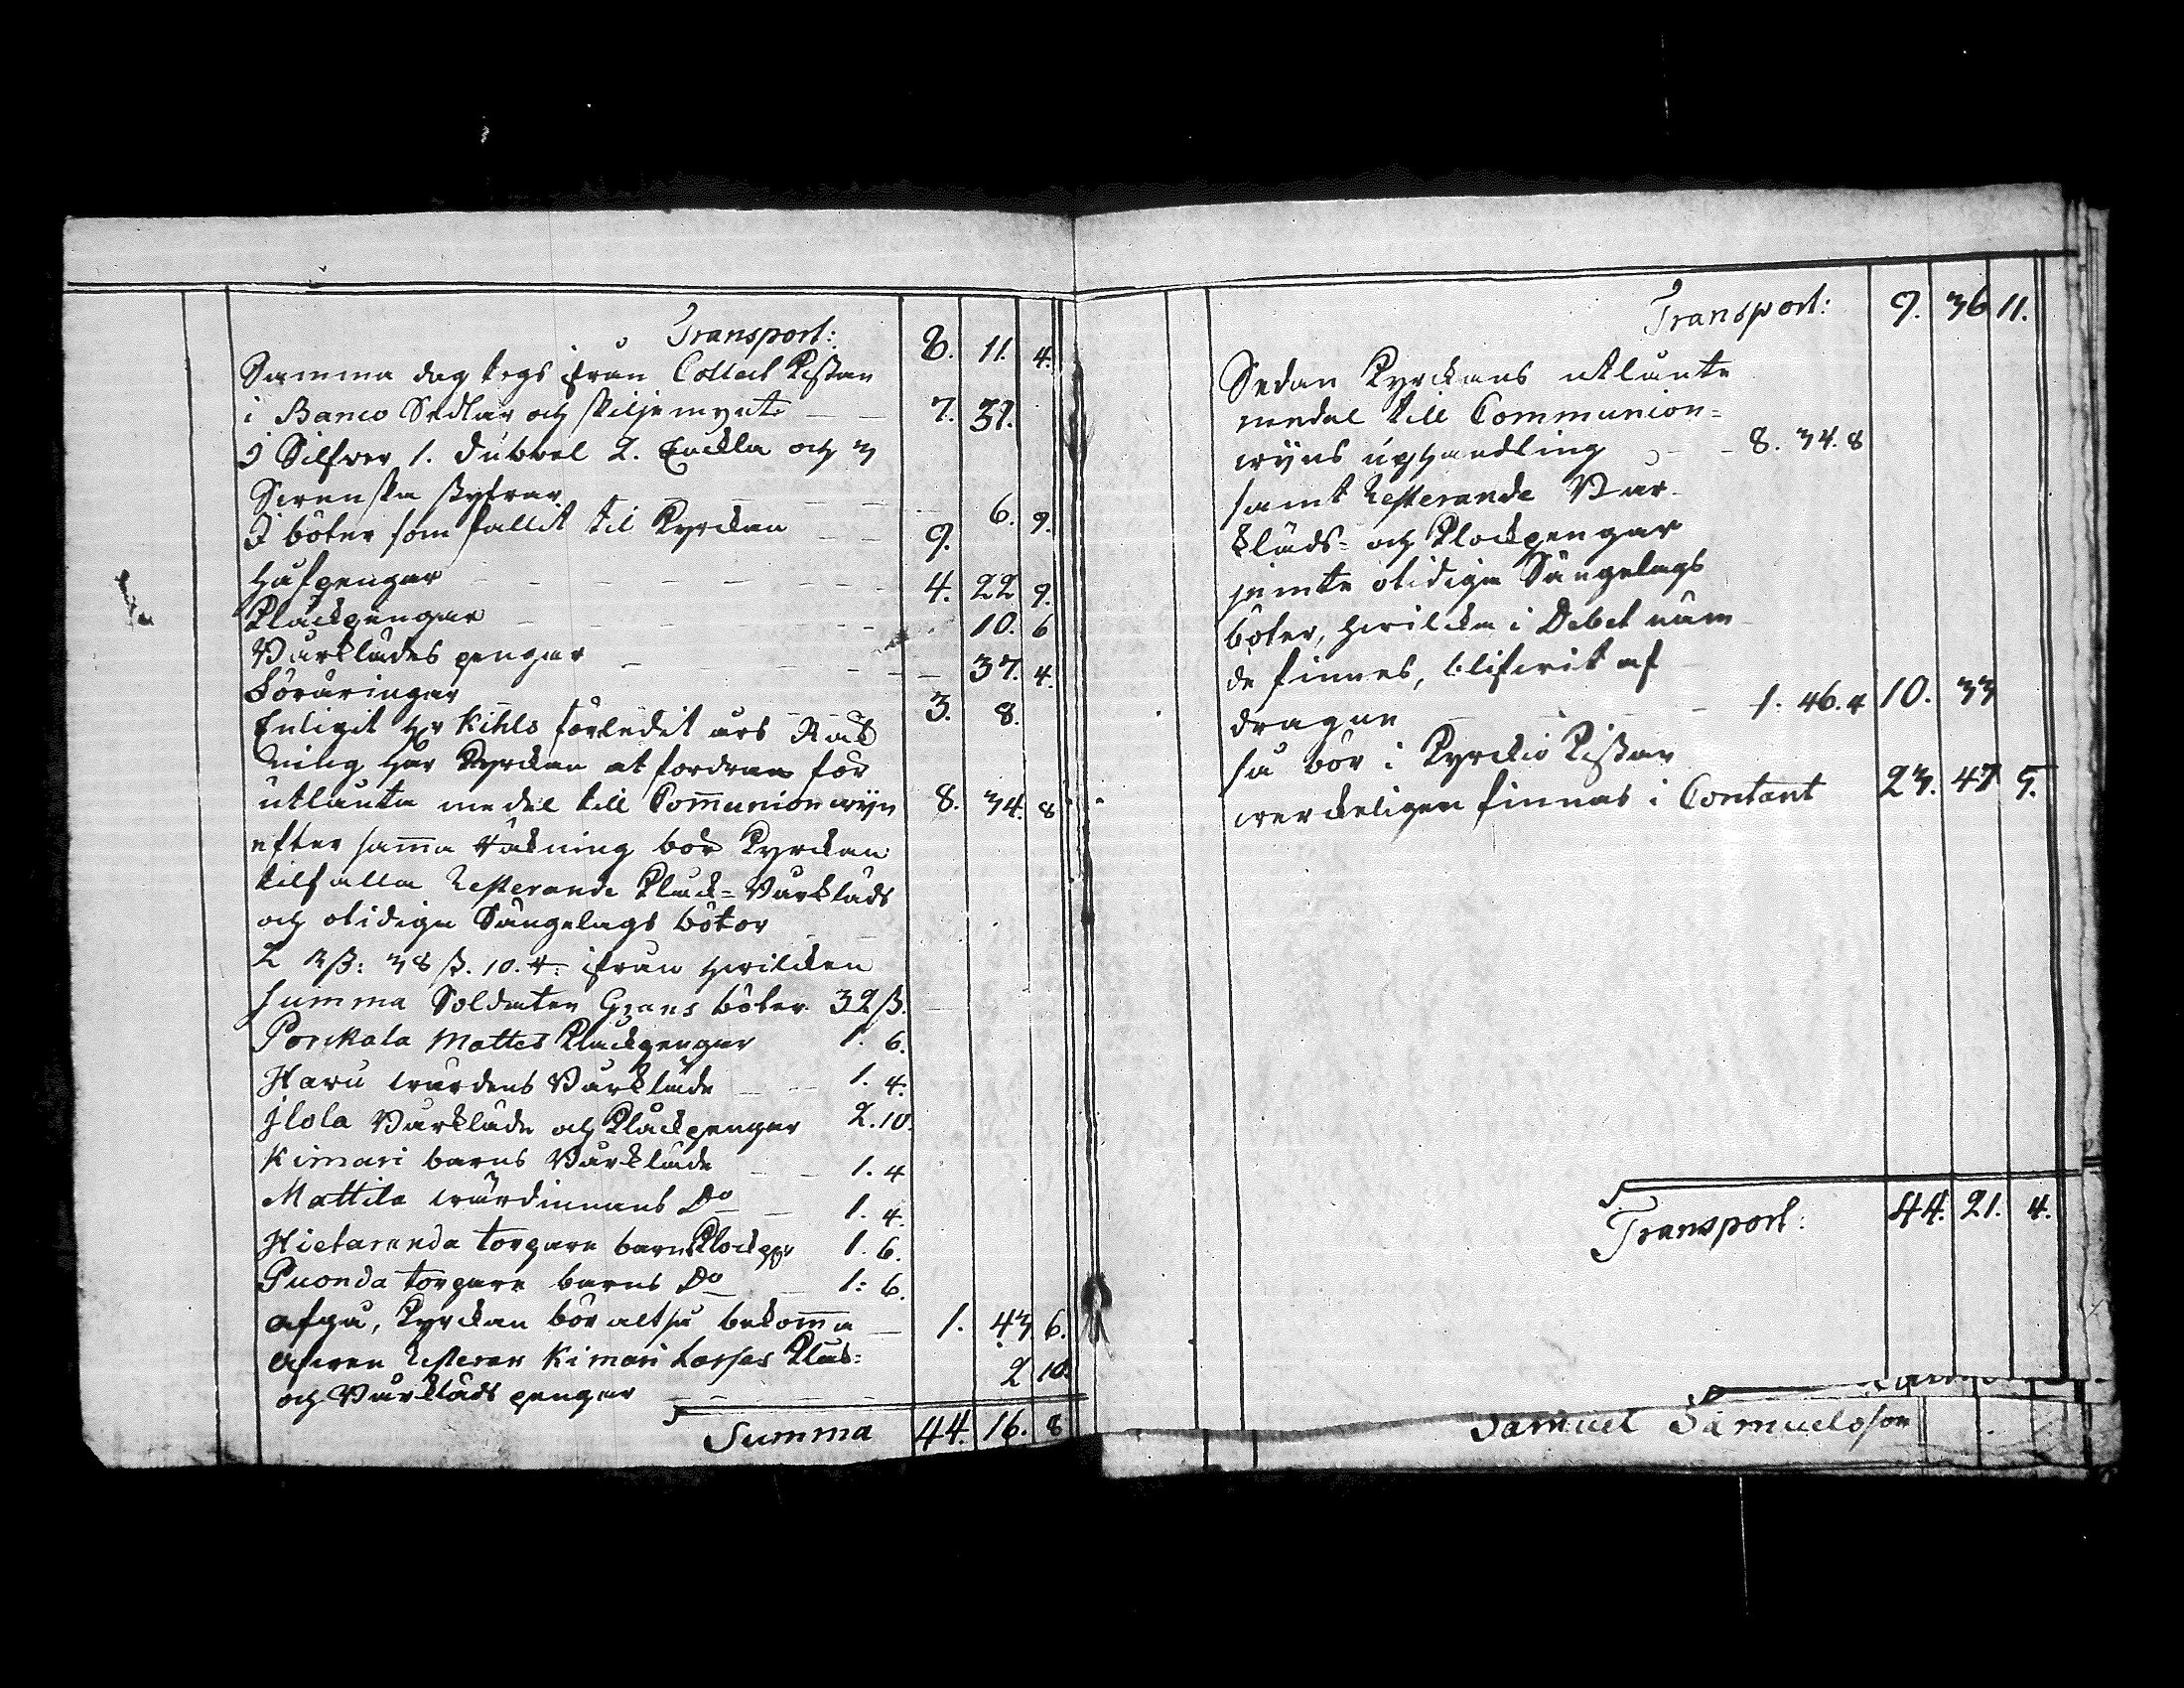 Transport: 8. 11. 4.
Samma dag togs ifrån Collect Kistan
i Banco Sedlar och skiljemynt 7. 31.
I Silfver 1. dubbel 2. Enckla och 3
Svenska styfrar 6. 9.
I böter som fallit til Kyrckan 9.
Håfpengar 4. 22 9.
Klåckpengar 10. 6
Bårklädes pengar 37. 4.
Föräringar 3. 8.
Enligit Hr Kihls förledit års Räk
ning har Kyrckan at fordran för
utlånta medel till Communion wijn 8. 34. 8
efter samma räkning bör Kyrckan
tilfalla resterande Klåck= Bårkläds
och otidiga Sängelags böter
2 Rß: 38 ß. 10. 4: ifrån hvilcken
summa Soldaten Grans böter 32 ß.
Porckala Mattes Klåckpengar 1. 6.
Haru wärdens Bårkläde 1. 4.
Jlola Bårkläde och Klåckpengar 2. 10.
Kimari barns Bårkläde 1. 4
Mattila wärdinnans Do 1. 4.
Hietaranda torpare barns Klockpgr 1. 6.
Puonda torpare barns Do 1: 6.
afgå, Kyrckan bör altså bekomma 1. 43 6.
Afven resterar Kimari Larses Klåck=
och Bårkläds pengar 2 10.
Summa 44. 16. 8
Transport: 9. 36 11.
Sedan Kyrckans utlånte
medel till Communion=
wijns uphandling 8. 34. 8
samt resterande Bår-
kläds= och Klockpengar
jemte otidiga Sängelags
böter, hvilcka i Debet näm
de finnes, blifvit af
dragne 1. 46. 4 10. 33
så bör i Kyrckio Kistan
werckeligen finnas i Contant 23. 47 5.
Transport: 44. 21. 4.
Samuel Samuelsson